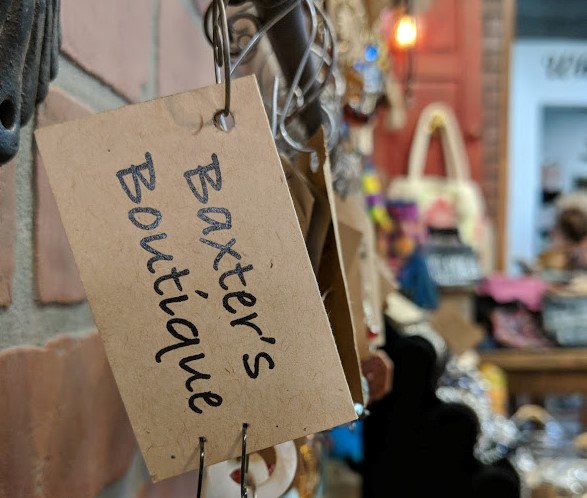 Baxter's
Boutique